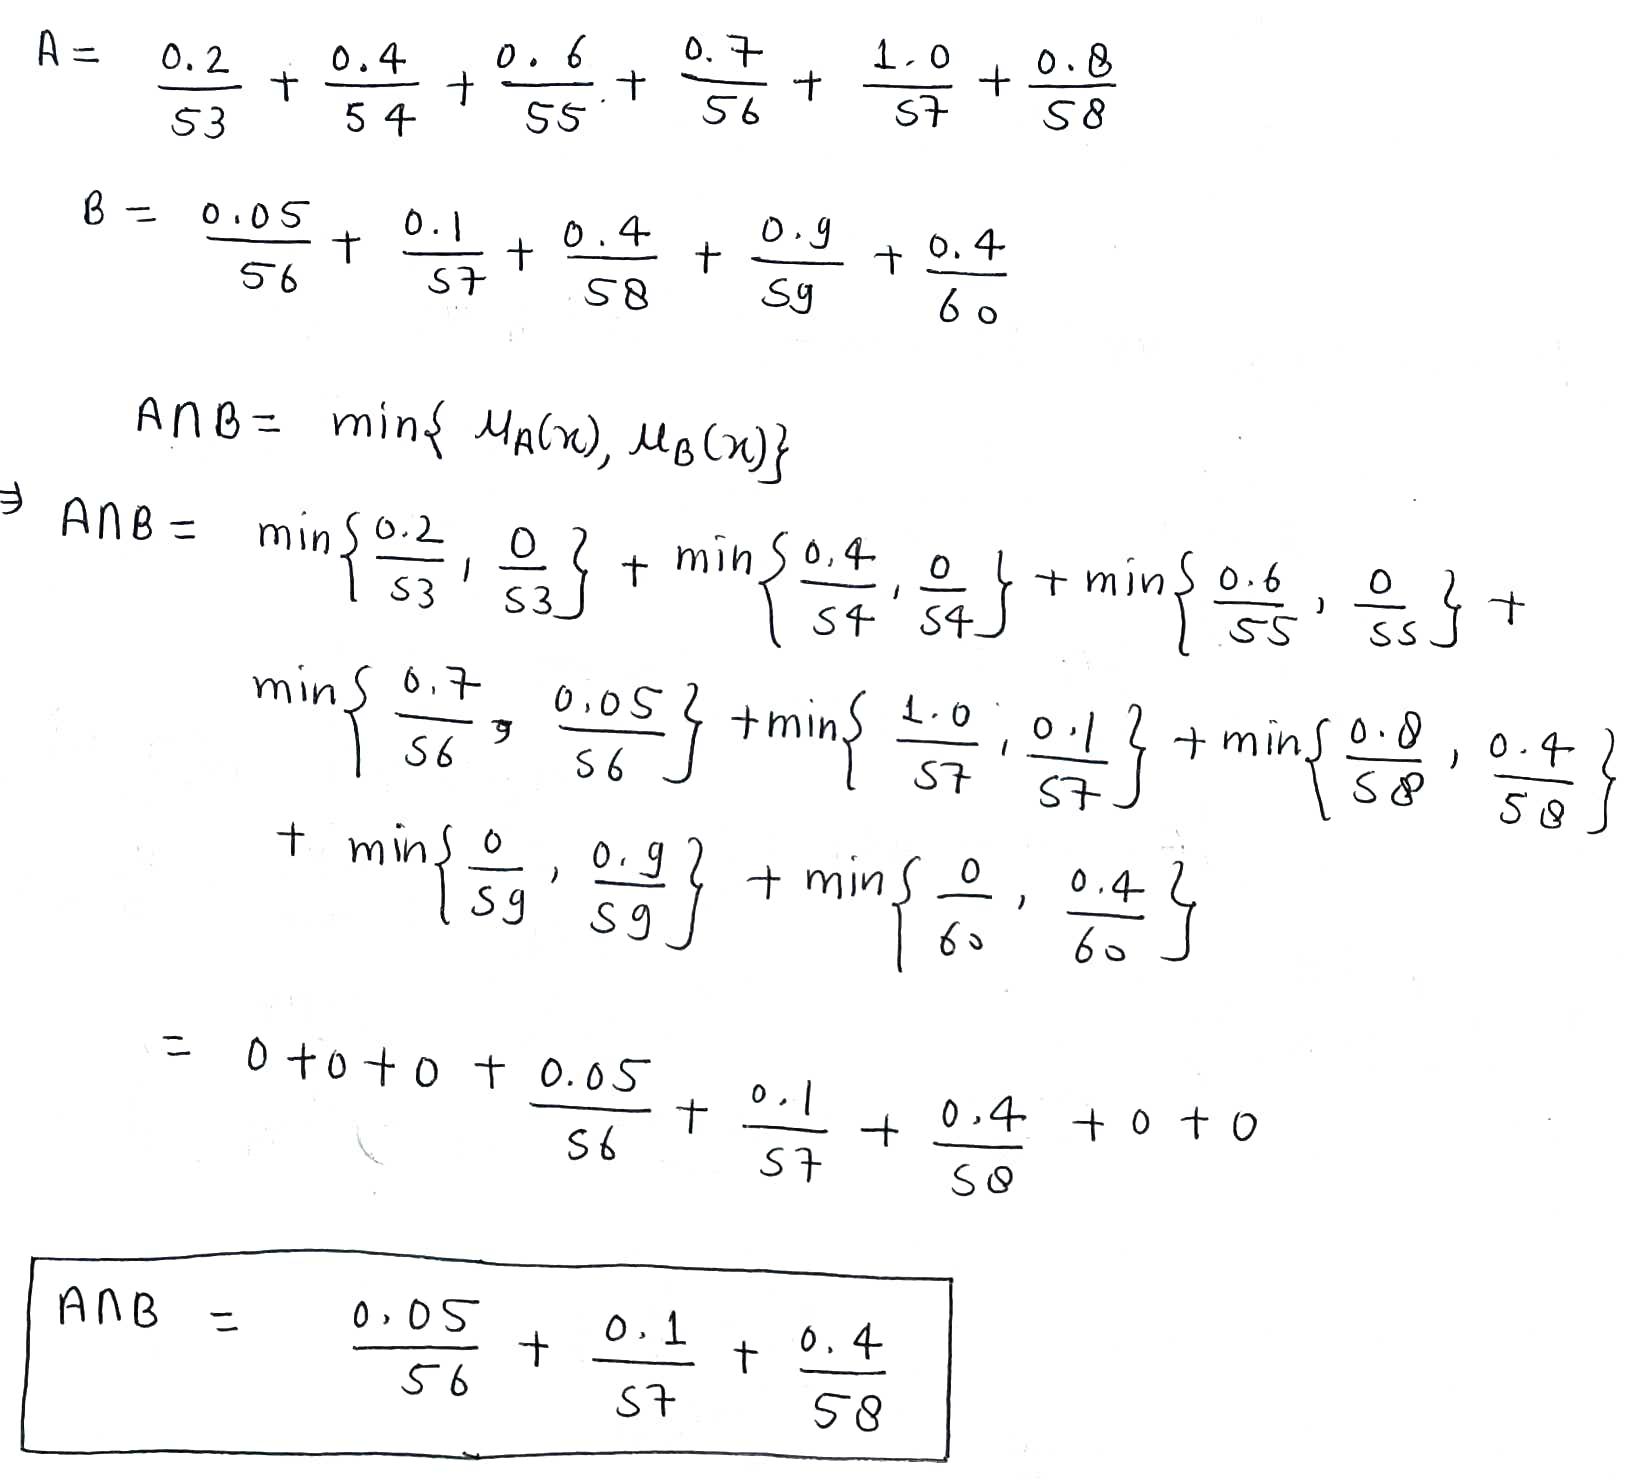 A = 0.2/53 + 0.4/54 + 0.6/55 + 0.7/56 + 1.0/57 + 0.8/58
B = 0.05/56 + 0.1/57 + 0.4/58 + 0.9/59 + 0.4/60
A∩B = min{ μA(x), μB(x)}
⇒ A∩B = min{0.2/53, 0/53} + min{0.4/54, 0/54} + min{0.6/55, 0/55} +
min{0.7/56, 0.05/56} + min{1.0/57, 0.1/57} + min{0.8/58, 0.4/58}
+ min{0/59, 0.9/59} + min{0/60, 0.4/60}
= 0 + 0 + 0 + 0.05/56 + 0.1/57 + 0.4/58 + 0 + 0
A∩B = 0.05/56 + 0.1/57 + 0.4/58